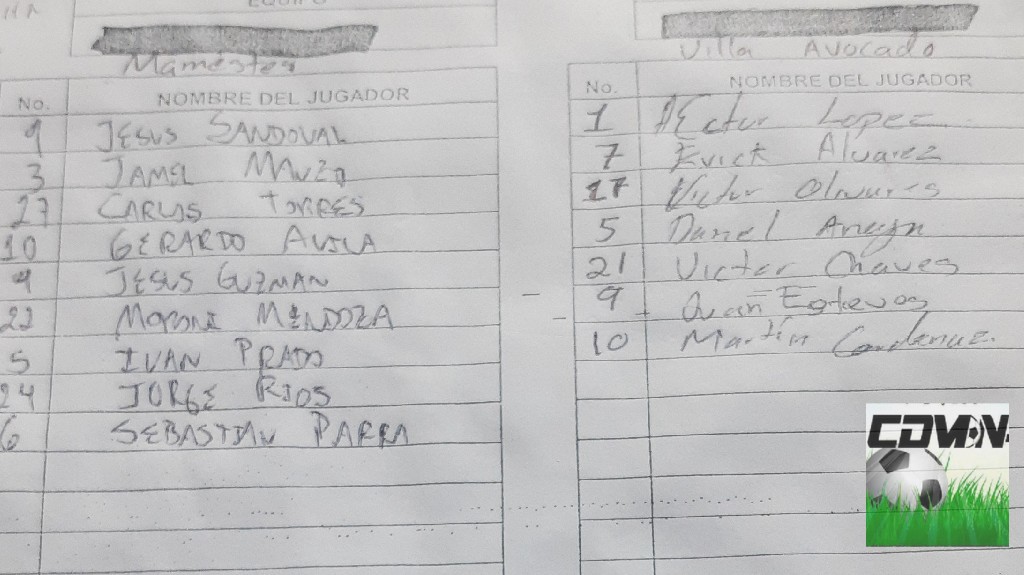 EQUIPO
Villa Avocado
No. NOMBRE DEL JUGADOR
9 JESUS SANDOVAL
3
27 CARLOS TORRES
10 GERARDO AVILA
9 JESUS GUZMAN
22 MENDOZA
5 IVAN PRADO
24 JORGE RIOS
6 SEBASTIAN PARRA
No. NOMBRE DEL JUGADOR
1 HEctor Lopez
7 Erick Alvarez
17 Victor Olivares
5 Daniel
21 Victor Chaves
9 Juan
10 Martín